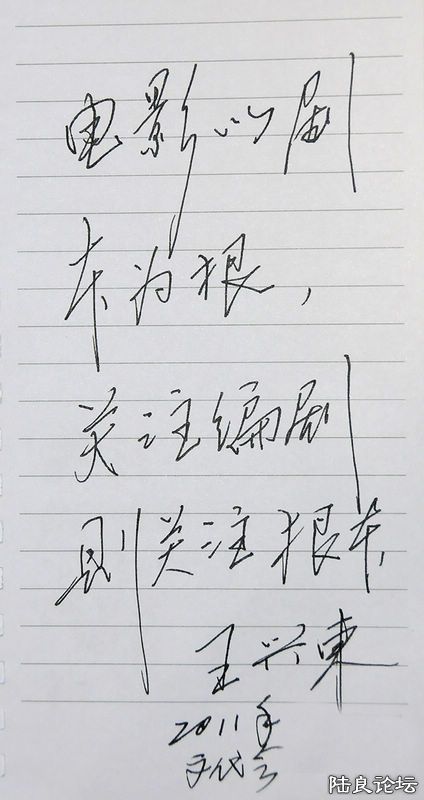 电影以剧
本为根，
关注编剧
则关注根本
王兴東
2011年
文代会
陆良论坛